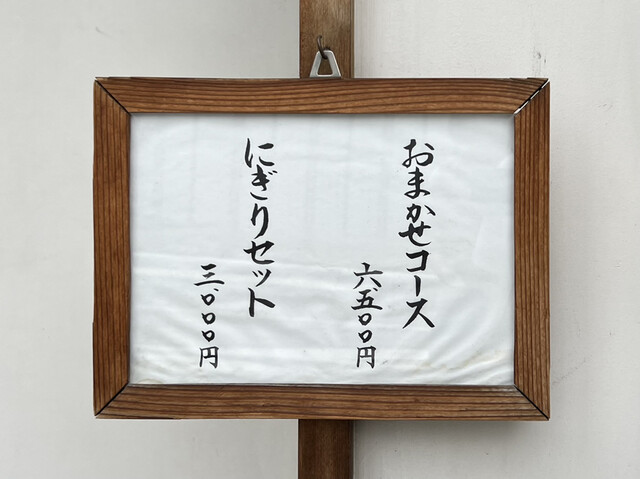 おまかせコース
六五〇〇円
にぎりセット
三、〇〇〇円